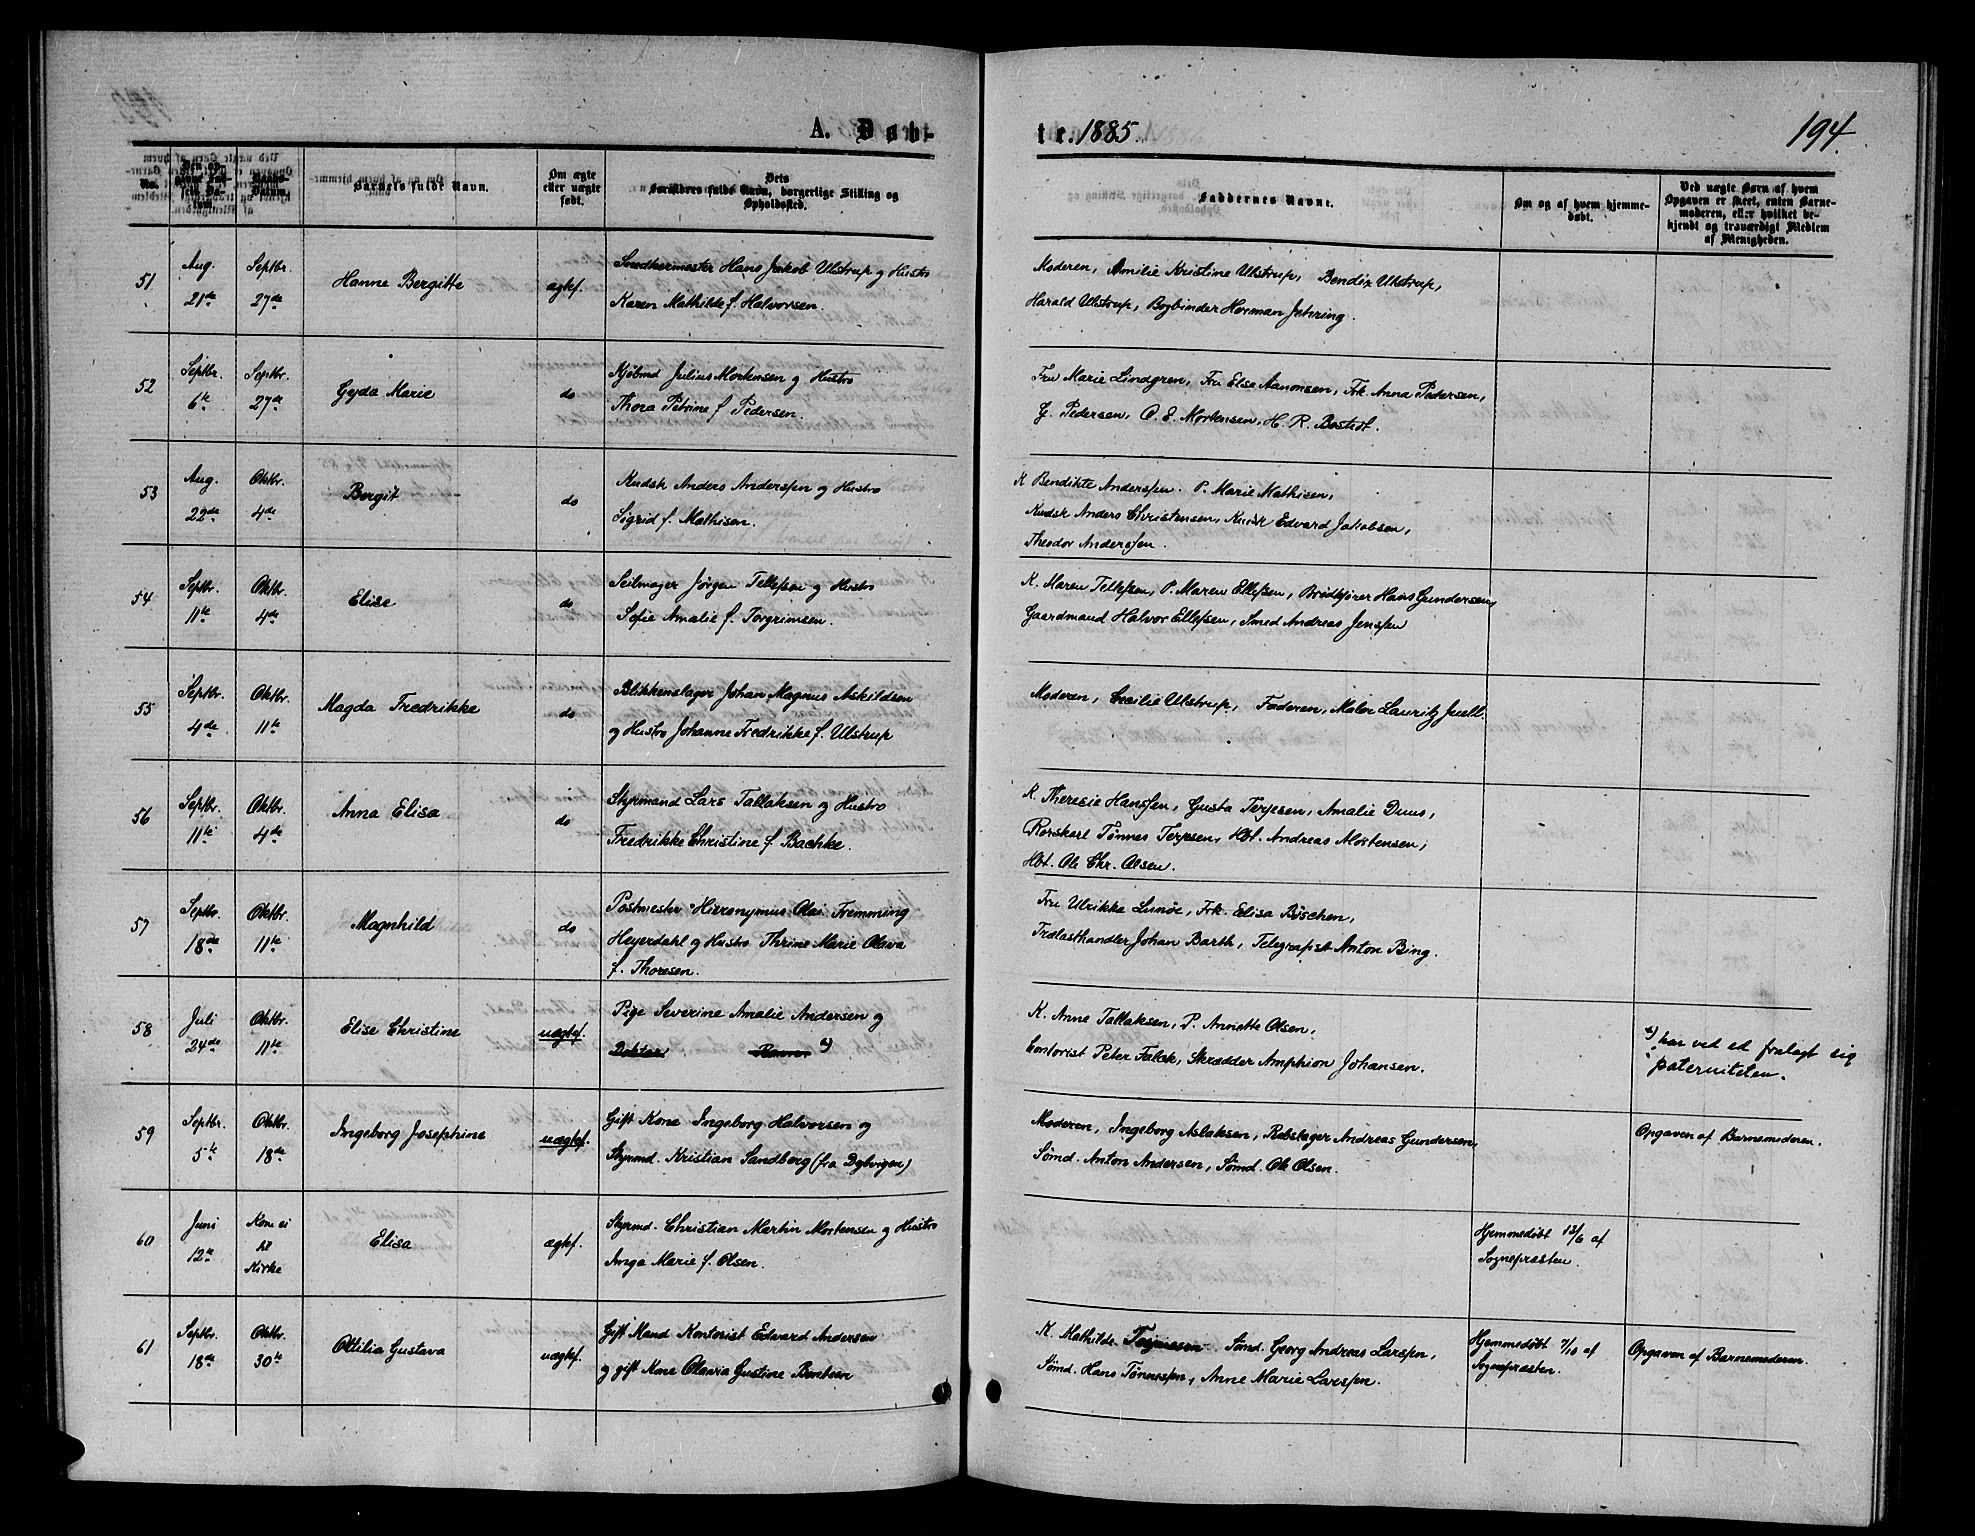 A. Døb-
te. 1885
194.
No.
Den opgivne Fødsels Datum.
Daabs-Datum.
Barnets fulde Navn.
Om ægte eller uægte født.
Dets Forældres fulde Navn, borgerlige Stilling og Opholdssted.
Faddernes Navne.
Om og af hvem hjemmedøbt.
Ved uægte Børn af hvem Opgaven er skeet, enten Barnemoderen, eller hvilket bekjendt og troværdigt Medlem af Menigheden.
51 Aug. 21de Septbr. 27de Hanne Bergitte ægtef. Snedkermester Hans Jakob Ulstrup og Hustro
Karen Mathilde f. Halvorsen.
Moderen, Amilie Kristine Ulstrup, Bendix Ulstrup,
Harald Ulstrup, Bogbinder Herman Jehring.
52 Septbr. 6te Septbr. 27de Gyda Marie do Kjøbmd Julius Mortensen og Hustro
Thora Petrine f. Pedersen.
Fru Marie Lindgren, Fru Else Aanonsen, Frk. Anna Pedersen,
G. Pedersen, O. E. Mortensen, H. R. Bostedt.
53 Aug. 22de Oktbr. 4de Bergit do Kudsk Anders Andersen og Hustro
Sigrid f. Mathisen.
K Bendikte Andersen. P. Marie Mathisen,
Kudsk Anders Christensen, Kudsk Edvard Jakobsen,
Theodor Andersen.
54 Septbr. 11te Oktbr. 4de Elise do Seilmager Jørgen Tellefsen og Hustro
Sofie Amalie f. Torgrimsen.
K. Maren Tellefsen, P. Maren Ellefsen, Brødkjører Hans Gundersen,
Gaardmand Halvor Ellefsen, Smed Andreas Jenssen
55 Septbr. 4de Oktbr. 11te Magda Fredrikke do Blikkenslager Johan Magnus Askildsen
og Hustro Johanne Fredrikke f. Ulstrup
Moderen, Cecilie Ulstrup, Faderen, Maler Lauritz Juell.
56 Septbr. 11te Oktbr. 4de Anna Elisa do Styrmand Lars Tallaksen og Hustro
Fredrikke Christine f. Bachke.
K. Theresie Hanssen, Gusta Terjesen, Amalie Duus,
Rorskarl Tønnes Terjesen, Hbt. Andreas Mortensen,
Hbt. Ole Chr. Olsen.
57 Septbr. 18de Oktbr. 11te Magnhild do Postmester Hieronymus Olai Fremming
Heyerdahl og Hustro Thrine Marie Olava
f. Thoresen.
Fru Ulrikke Lunøe, Frk. Elisa Bøschen,
Trælasthandler Johan Barth, Telegrafist Anton Bing.
58 Juli 24de Oktbr. 11te Elise Christine uægtef. Pige Severine Amalie Andersen og
Doktor
K. Anne Tallaksen, P. Annette Olsen,
Contorist Peter Falck, Skrædder Amphion Johansen.
a) har ved ed fralagt sig
paterniteten.
59 Septbr. 5te Oktbr. 18de Ingeborg Josephine uægtef. Gift Kone Ingeborg Halvorsen og
Styrmd. Kristian Sandberg (fra Dybvigen)
Moderen, Ingeborg Aslaksen, Rebslager Andreas Gundersen,
Sømd. Anton Andersen, Sømd. Ole Olsen.
Opgaven af Barnemoderen.
60 Juni 12te Kom ei til Kirke Elisa ægtef. Styrmd. Christian Martin Mortensen og Hustro
Inga Marie f. Olsen.
Hjemmedøbt 13/6 af
Sognepræsten.
61 Septbr. 18de Oktbr. 30te Ottilia Gustava uægtef. Gift Mand Kontorist Edvard Andersen
og gift Kone Olava Gustine Bentsen
K. Mathilde Sømd. Georg Andreas Larssen,
Sømd. Hans Tønnessen, Anne Marie Larssen.
Hjemmedøbt 7/10 af
Sognepræsten.
Opgaven af Barnemoderen.